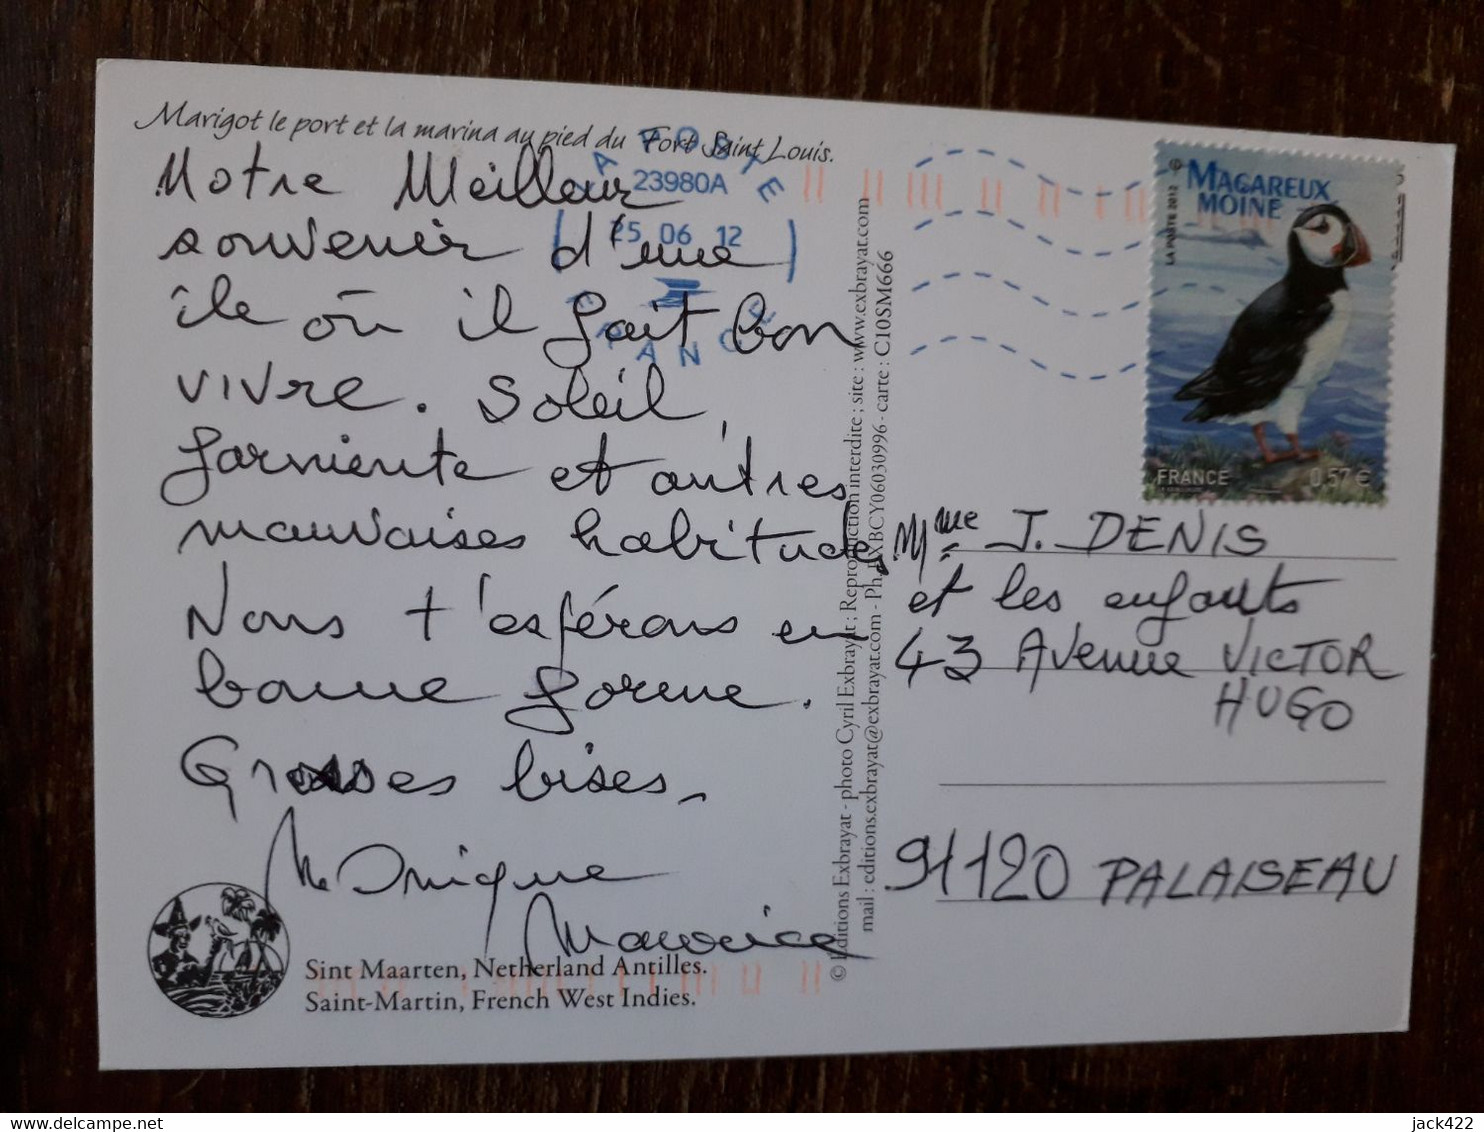 Marigot le port et la marina au pied du Fort Saint Louis.
Notre Meilleur
souvenir d'une
île où il fait bon
vivre. Soleil,
farniente et autres
mauvaises habitudes.
Nous t'espérons en
bonne forme.
Grosses bises,
Monique
Maurice
Sint Maarten, Netherland Antilles.
Saint-Martin, French West Indies.
LA POSTE
23980A
25 06 12
FRANCE
© Editions Exbrayat - photo Cyril Exbrayat ; Reproduction interdite ; site : www.exbrayat.com
mail : editions.exbrayat@exbrayat.com - Ph. EXBCY06030996 - carte : C10SM666
MACAREUX
MOINE
LA POSTE 2012
FRANCE 0,57 €
Mme J. DENIS
et les enfants
43 Avenue VICTOR
HUGO
91120 PALAISEAU
jack422